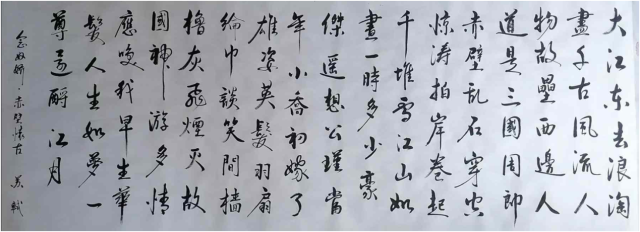 大江东去浪淘
盡千古風流人
物故壘西邊人
道是三國周郎
赤壁乱石穿空
惊涛拍岸卷起
千堆雪江山如
畫一時多少豪
傑遥想公瑾當
年小喬初嫁了
雄姿英髮羽扇
綸巾談笑間檣
櫓灰飛煙灭故
國神游多情
應笑我早生華
髮人生如夢一
尊還酹江月
念奴娇·赤壁懷古 苏軾